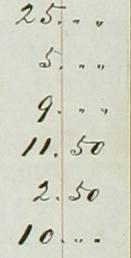 25. „ „
5. „ „
9. „ „
11. 50
2. 50
10. „ „